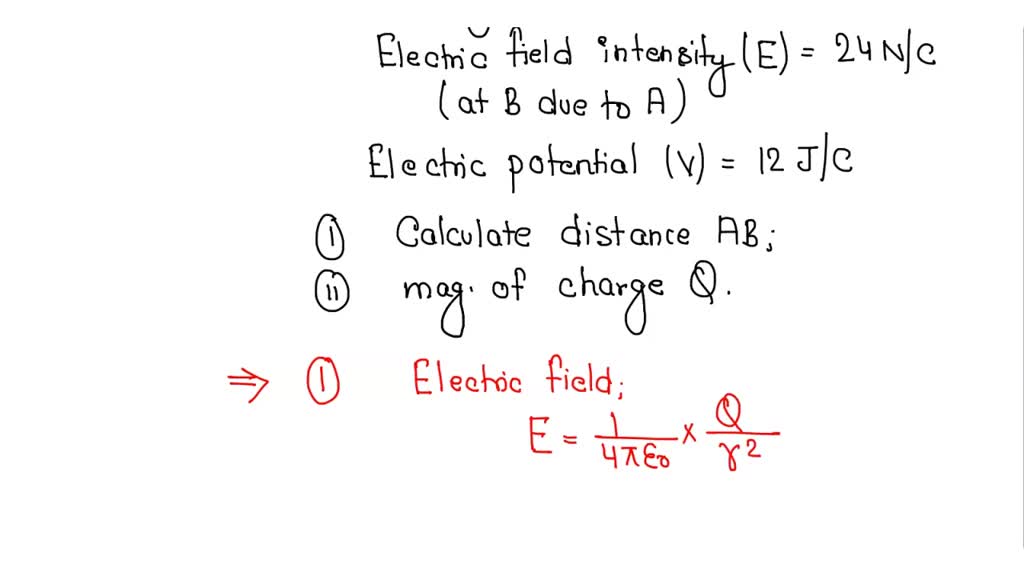 Electric field intensity (E) = 24 N/C
(at B due to A)
Electric potential (V) = 12 J/C
(i) Calculate distance AB;
(ii) mag. of charge Q.
⇒ (i) Electric field;
E = 1/4πε₀ × Q/r²